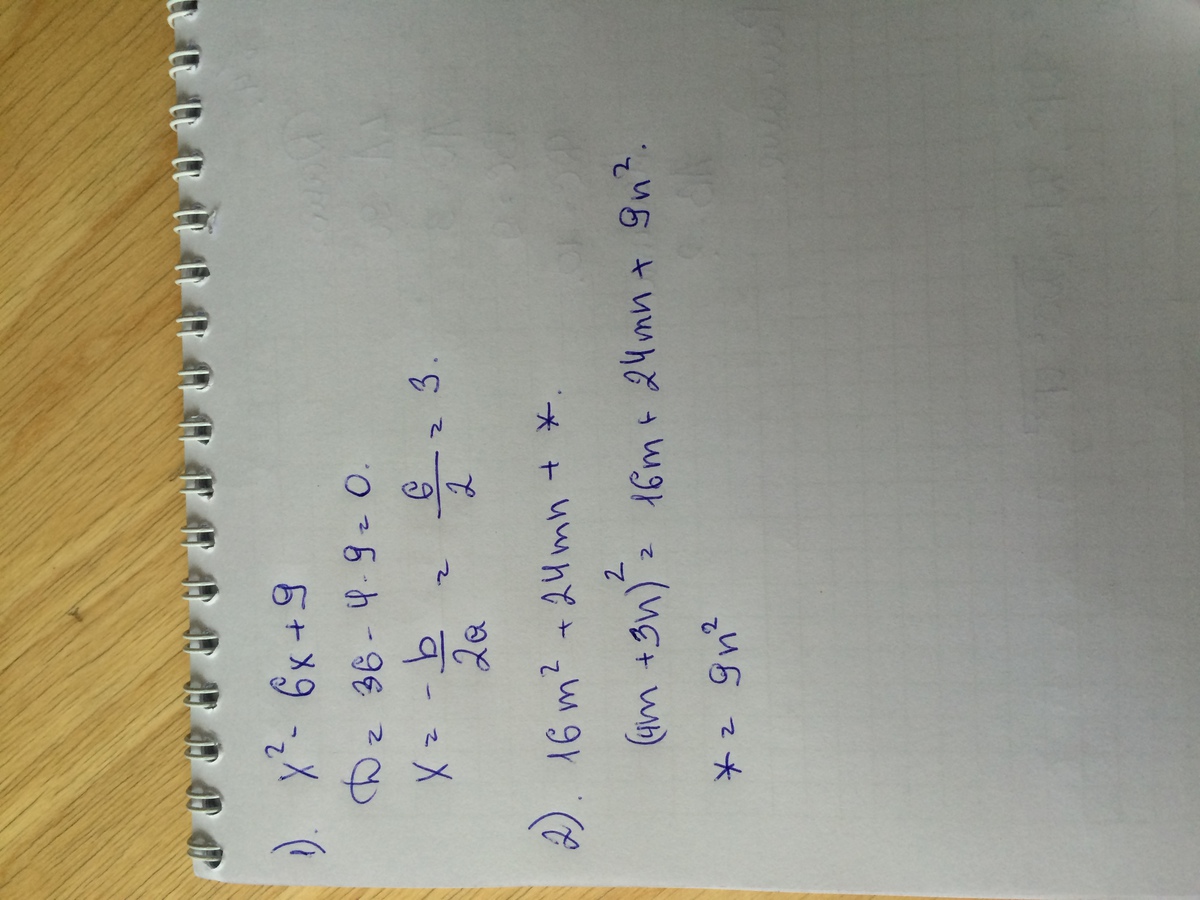 1). x² - 6x + 9
D = 36 - 4 · 9 = 0.
x = - b/2a = 6/2 = 3.
2). 16m² + 24mn + *.
(4m + 3n)² = 16m + 24mn + 9n².
* = 9n²